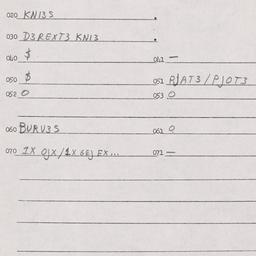 020 KNI3S .
030 D3REXT3 KNI3 .
040 $ 041 —
050 $ 051 PJAT3/PJOT3
052 0 053 0
060 BURV3S 061 0
070 1X OJX/1X GEJ EX... 071 —